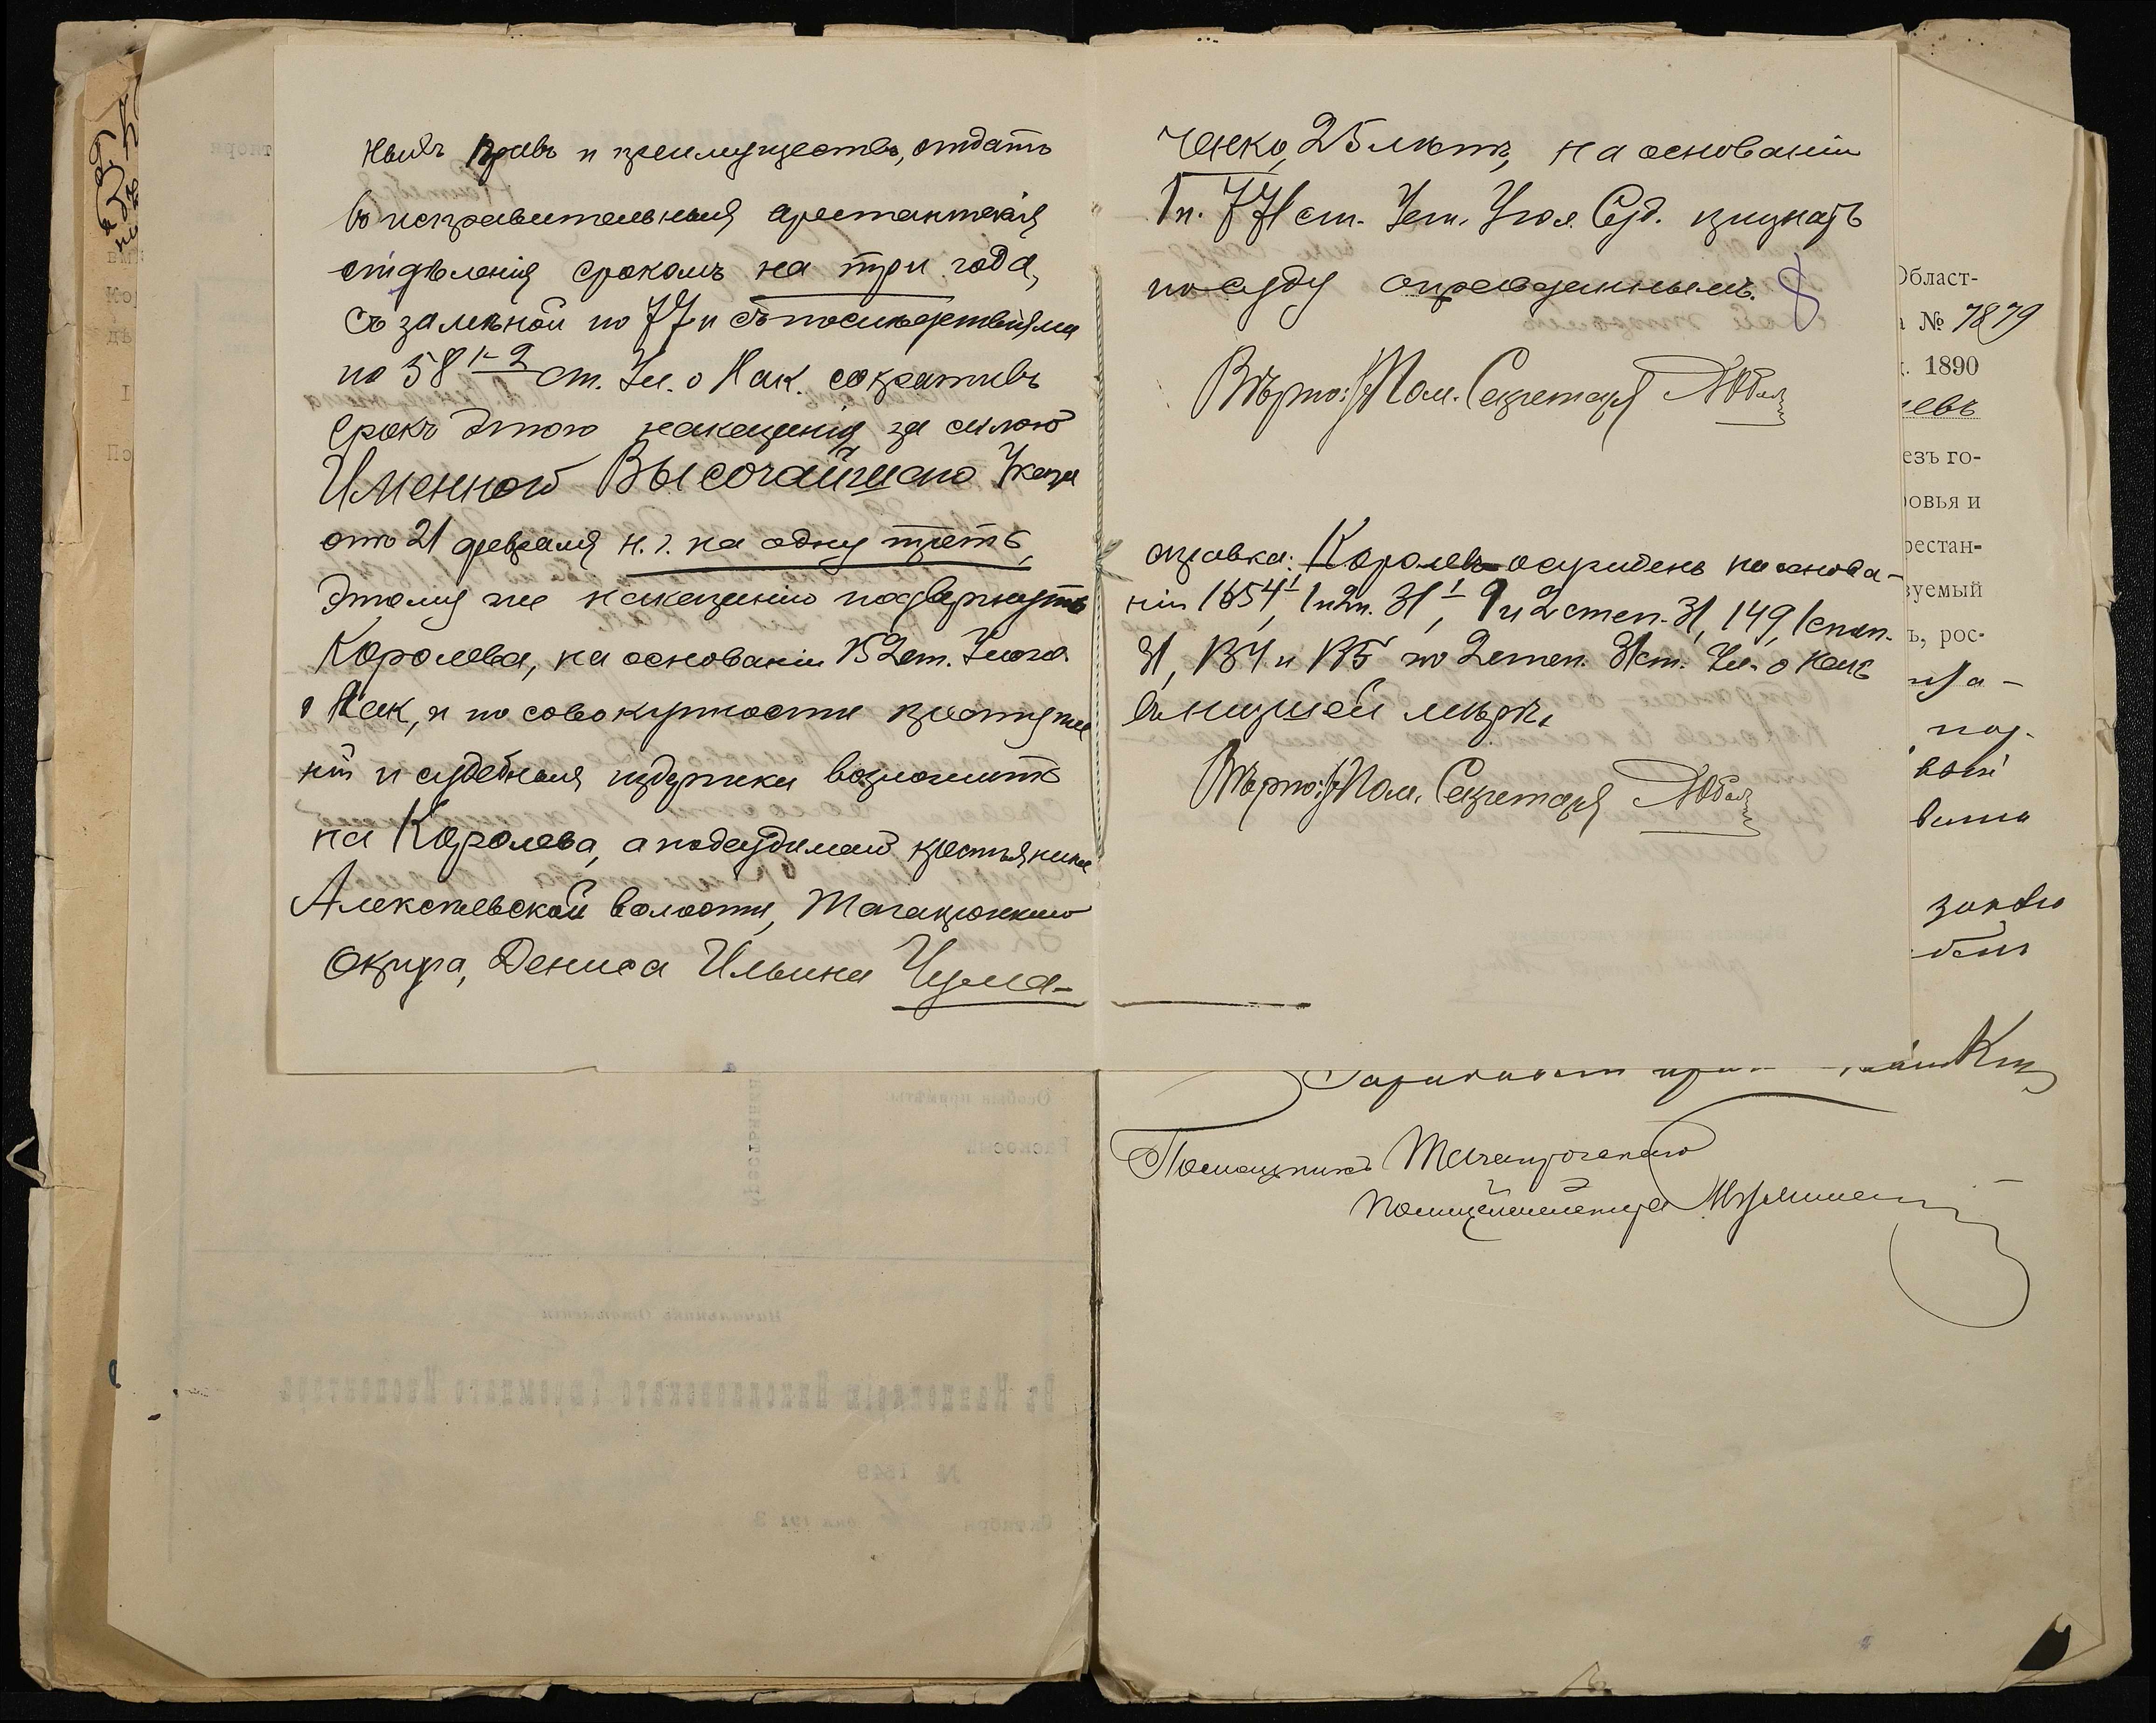 ныхъ правъ и преимуществъ, отдать
въ исправительныя арестантскія
отдѣленія срокомъ на три года,
съ замѣной по 77 и съ послѣдствіями
по 58 1-2 ст. Ул. о Нак. сокративъ
срокъ этого наказанія за силою
Именного Высочайшаго Указа
отъ 21 февраля н. г. на одну треть,
Этому же наказанію подвергнуть
Королева, на основаніи 152 ст. Улож.
о Нак, и по совокупности преступле
ній и судебныя издержки возложить
на Королева, а подсудимаго крестьянина
Алексѣевской волости, Таганрогскаго
Округа, Дениса Ильина Чума-
ченко, 25 лѣтъ, на основаніи
1 п. 771 ст. Уст. Угол. Суд. признать
по суду оправданнымъ.
Вѣрно: Пом. Секретаря
справка: Королевъ осужденъ на основа-
ніи 1654¹, 1 и 2 п. 31¹, 1 и 2 степ. 31, 149, 1 степ.
31, 134 и 135 по 2 степ. 31 ст. Ул. о Нак
въ низшей мѣрѣ,
Вѣрно: Пом. Секретаря
Област-
№ 7879
1890
евъ
езъ го-
ровья и
рестан-
зуемый
ъ, рос-
Помощникъ Таганрогскаго
Полицеймейстера
Особыя примѣты:
Раскосъ.
Начальникъ Отдѣленія
Въ Канцелярію Николаевскаго Тюремнаго Инспектора
№ 1849